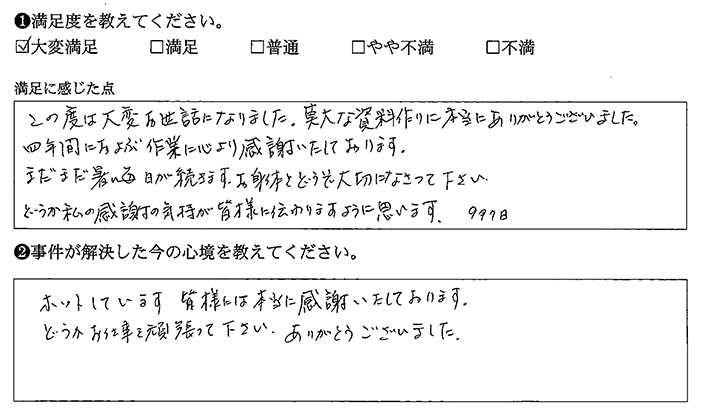 ❶満足度を教えてください。
☑大変満足 □満足 □普通 □やや不満 □不満
満足に感じた点
この度は大変お世話になりました。莫大な資料作りに本当にありがとうございました。
四年間におよぶ作業に心より感謝いたしております。
まだまだ暑い毎日が続きます。お身体をどうぞ大切になさって下さい.
どうか私の感謝の気持が皆様に伝わりますように思います.
❷事件が解決した今の心境を教えてください。
ホットしています 皆様には本当に感謝いたしております。
どうかお仕事を頑張って下さい. ありがとうございました.